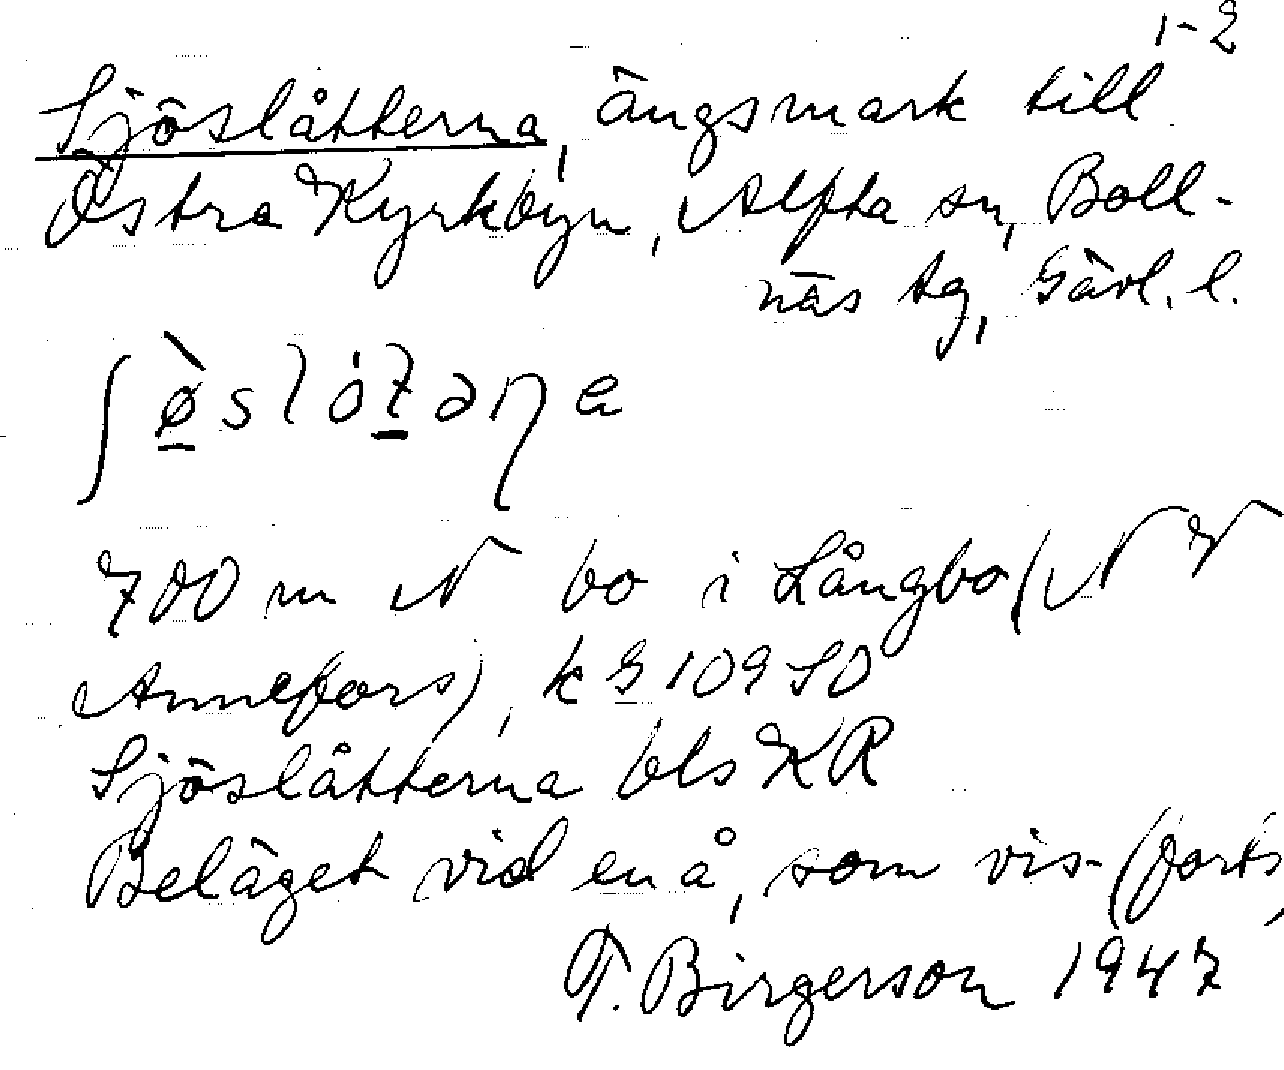 1-2
Sjöslåtterna, ängsmark till
Östra Kyrkbyn, Alfta sn, Boll-
näs tg, Gävl. l.
700 m N bo i Långbo (N V
Annefors), k G 109 SO
Sjöslåtterna bls KR
Beläget vid en å, som vis- (forts,
T. Birgerson 1947